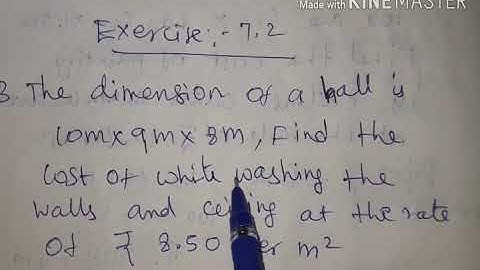 Made with KINEMASTER
Exercise:- 7.2
3. The dimension of a hall is
10m x 9m x 8m, Find the
cost of white washing the
walls and ceiling at the rate
of ₹ 8.50 per m²